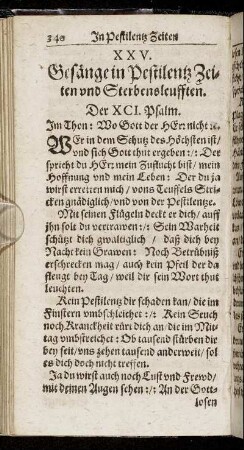 340 In Pestilentz Zeiten
XXV.
Gesänge in Pestilentz Zei-
ten vnd Sterbensleufften.
Der XCI. Psalm.
Im Thon: Wo Gott der HErr nicht ꝛc.
WEr in dem Schutz des Höchsten ist/
vnd sich Gott thut ergeben:/: Der
spricht du HErr mein Zuflucht bist/ mein
Hoffnung vnd mein Leben. Der du ja
wirst erretten mich/ vons Teuffels Stri-
cken gnädiglich/ vnd von der Pestilentze.
Mit seinen Flügeln deckt er dich/ auff
jhn solt du vertrawen:/: Sein Warheit
schützt dich gwaltiglich/ daß dich bey
Nacht kein Grawen: Noch Betrübniß
erschrecken mag/ auch kein Pfeil der da
fleugt bey Tag/ weil dir sein Wort thut
leuchten.
Kein Pestilentz dir schaden kan/ die im
Finstern vmbschleichet:/: Kein Seuch
noch Kranckheit rürt dich an/ die im Mit-
tag vmbstreichet: Ob tausend stürben dir
bey seit/ vns zehen tausend anderweit/ sol
es dich doch nicht treffen.
Ja du wirst auch noch Lust vnd Frewd/
mit deinen Augen sehen:/: An der Gott-
losen